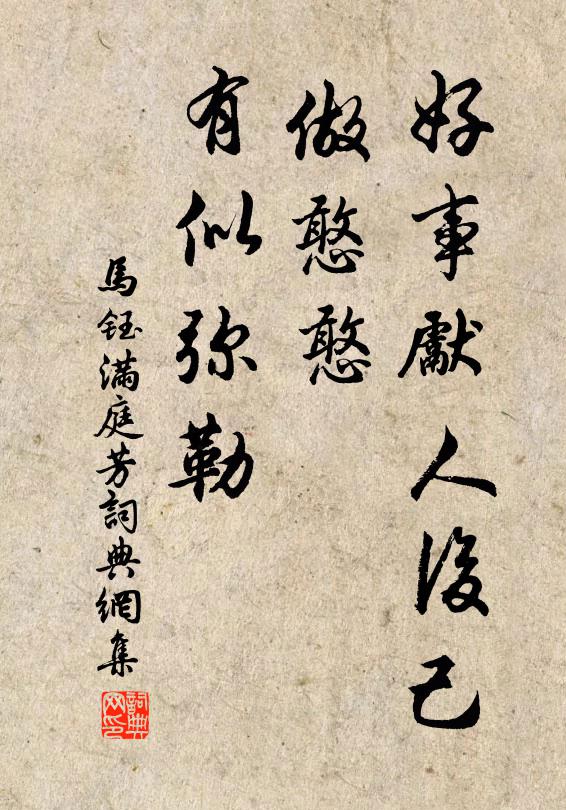 好事獻人後己
做憨憨
有似弥勒
馬鈺滿庭芳詞典網集
詞典网印